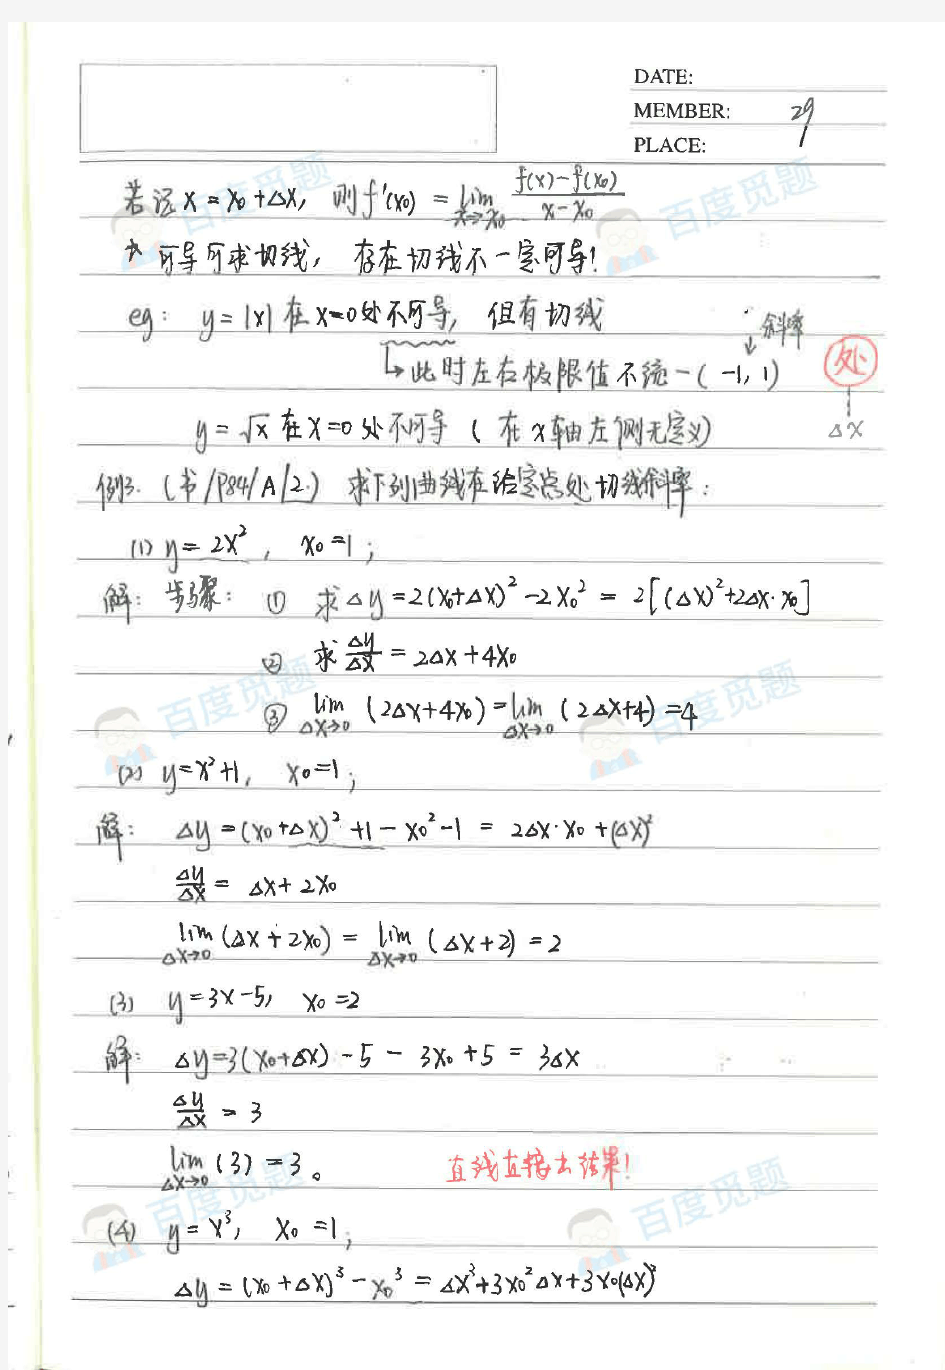 DATE:
MEMBER: 29
PLACE:
若设 x = x₀ + Δx, 则 f'(x₀) = lim x→x₀ (f(x)-f(x₀))/(x-x₀)
☆ 可导可求切线, 存在切线不一定可导!
eg: y = |x| 在 x=0处不可导, 但有切线
↓ 斜率
↳ 此时左右极限值不统一 ( -1, 1)
处
Δx
y = √x 在 x=0 处不可导 ( 在 x 轴左侧无定义)
例3. (书/P84/A/2.) 求下列曲线在给定点处切线斜率:
(1) y = 2x², x₀ = 1;
解: 步骤: ① 求 Δy = 2(x₀+Δx)² - 2x₀² = 2[(Δx)²+2Δx·x₀]
② 求 Δy/Δx = 2Δx + 4x₀
③ lim Δx→0 (2Δx+4x₀) = lim Δx→0 (2Δx+4) = 4
(2) y = x²+1, x₀=1;
解: Δy = (x₀+Δx)² +1 - x₀² -1 = 2Δx·x₀ + (Δx)²
Δy/Δx = Δx + 2x₀
lim Δx→0 (Δx + 2x₀) = lim Δx→0 (Δx+2) = 2
(3) y = 3x-5, x₀ = 2
解: Δy = 3(x₀+Δx) - 5 - 3x₀ + 5 = 3Δx
Δy/Δx = 3
lim Δx→0 (3) = 3。 直线直接出结果!
(4) y = x³, x₀ = 1;
Δy = (x₀+Δx)³ - x₀³ = Δx³+3x₀²Δx+3x₀(Δx)²
百度觅题
百度觅题
百度觅题
百度觅题
百度觅题
百度觅题